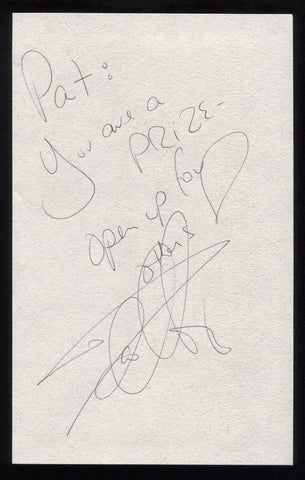 Pat:
You are a
PRIZE-
open up for
others